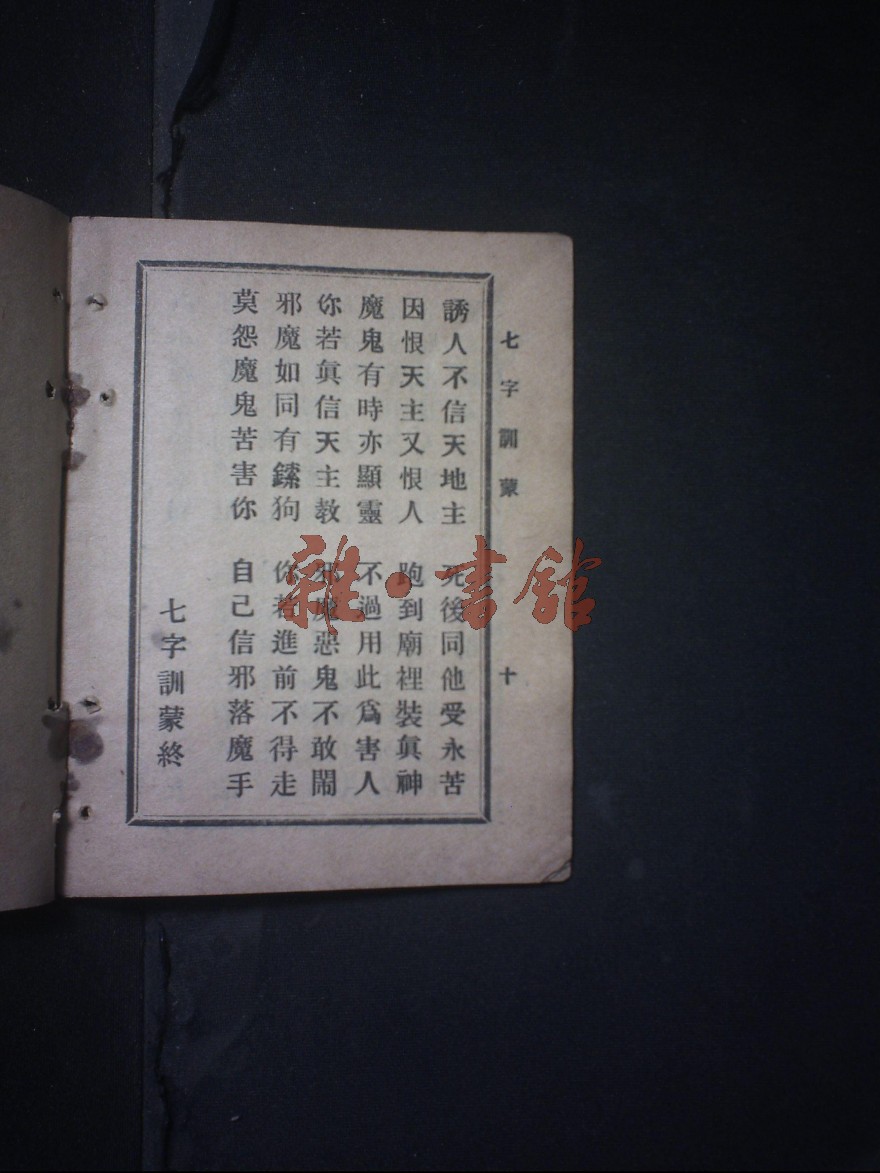 七字訓蒙 十
誘人不信天地主 死後同他受永苦
因恨天主又恨人 跑到廟裡裝眞神
魔鬼有時亦顯靈 不過用此爲害人
你若眞信天主教 邪魔惡鬼不敢鬧
邪魔如同有鎍狗 你若進前不得走
莫怨魔鬼苦害你 自己信邪落魔手
七字訓蒙終
雜·書館